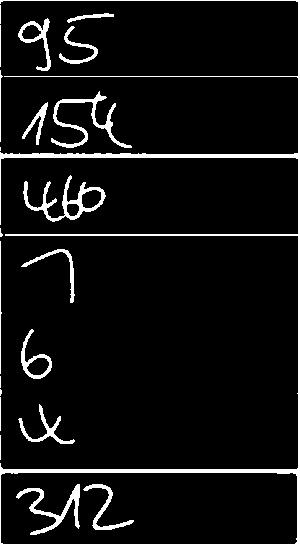 95
154
460
7
6
4
312